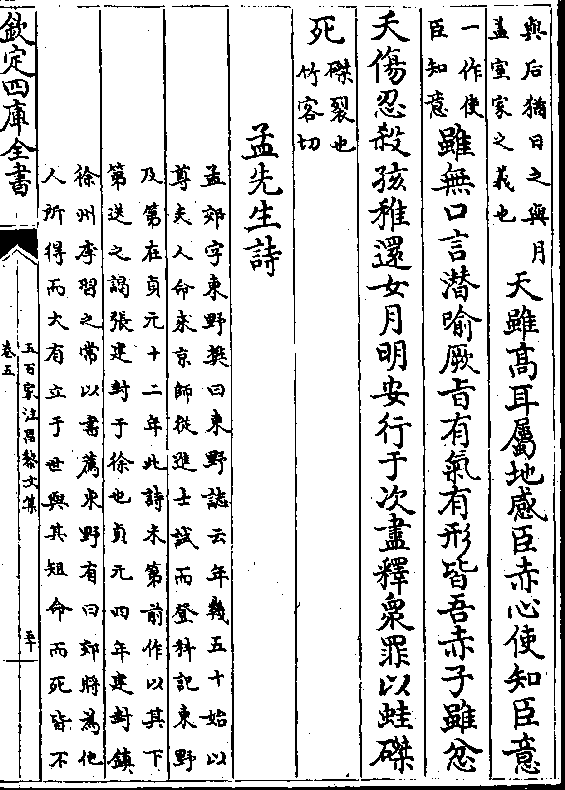 與后猶日之與月
蓋室家之義也
天雖高耳屬地感臣赤心使知臣意
一作使
臣知意
雖無口言潜喻厥旨有氣有形皆吾赤子雖忿
夭傷忍殺孩稚還女月明安行于次盡釋衆罪以蛙磔
死
磔裂也
竹客切
孟先生詩
孟郊字東野樊曰東野誌云年幾五十始以
尊夫人命來京師從進士試而登科記東野
及第在貞元十二年此詩未第前作以其下
第送之謁張建封于徐也貞元四年建封鎮
徐州李習之嘗以書薦東野有曰郊將為他
人所得而大有立于世與其短命而死皆不
欽定四庫全書
五百家注昌黎文集
卷五